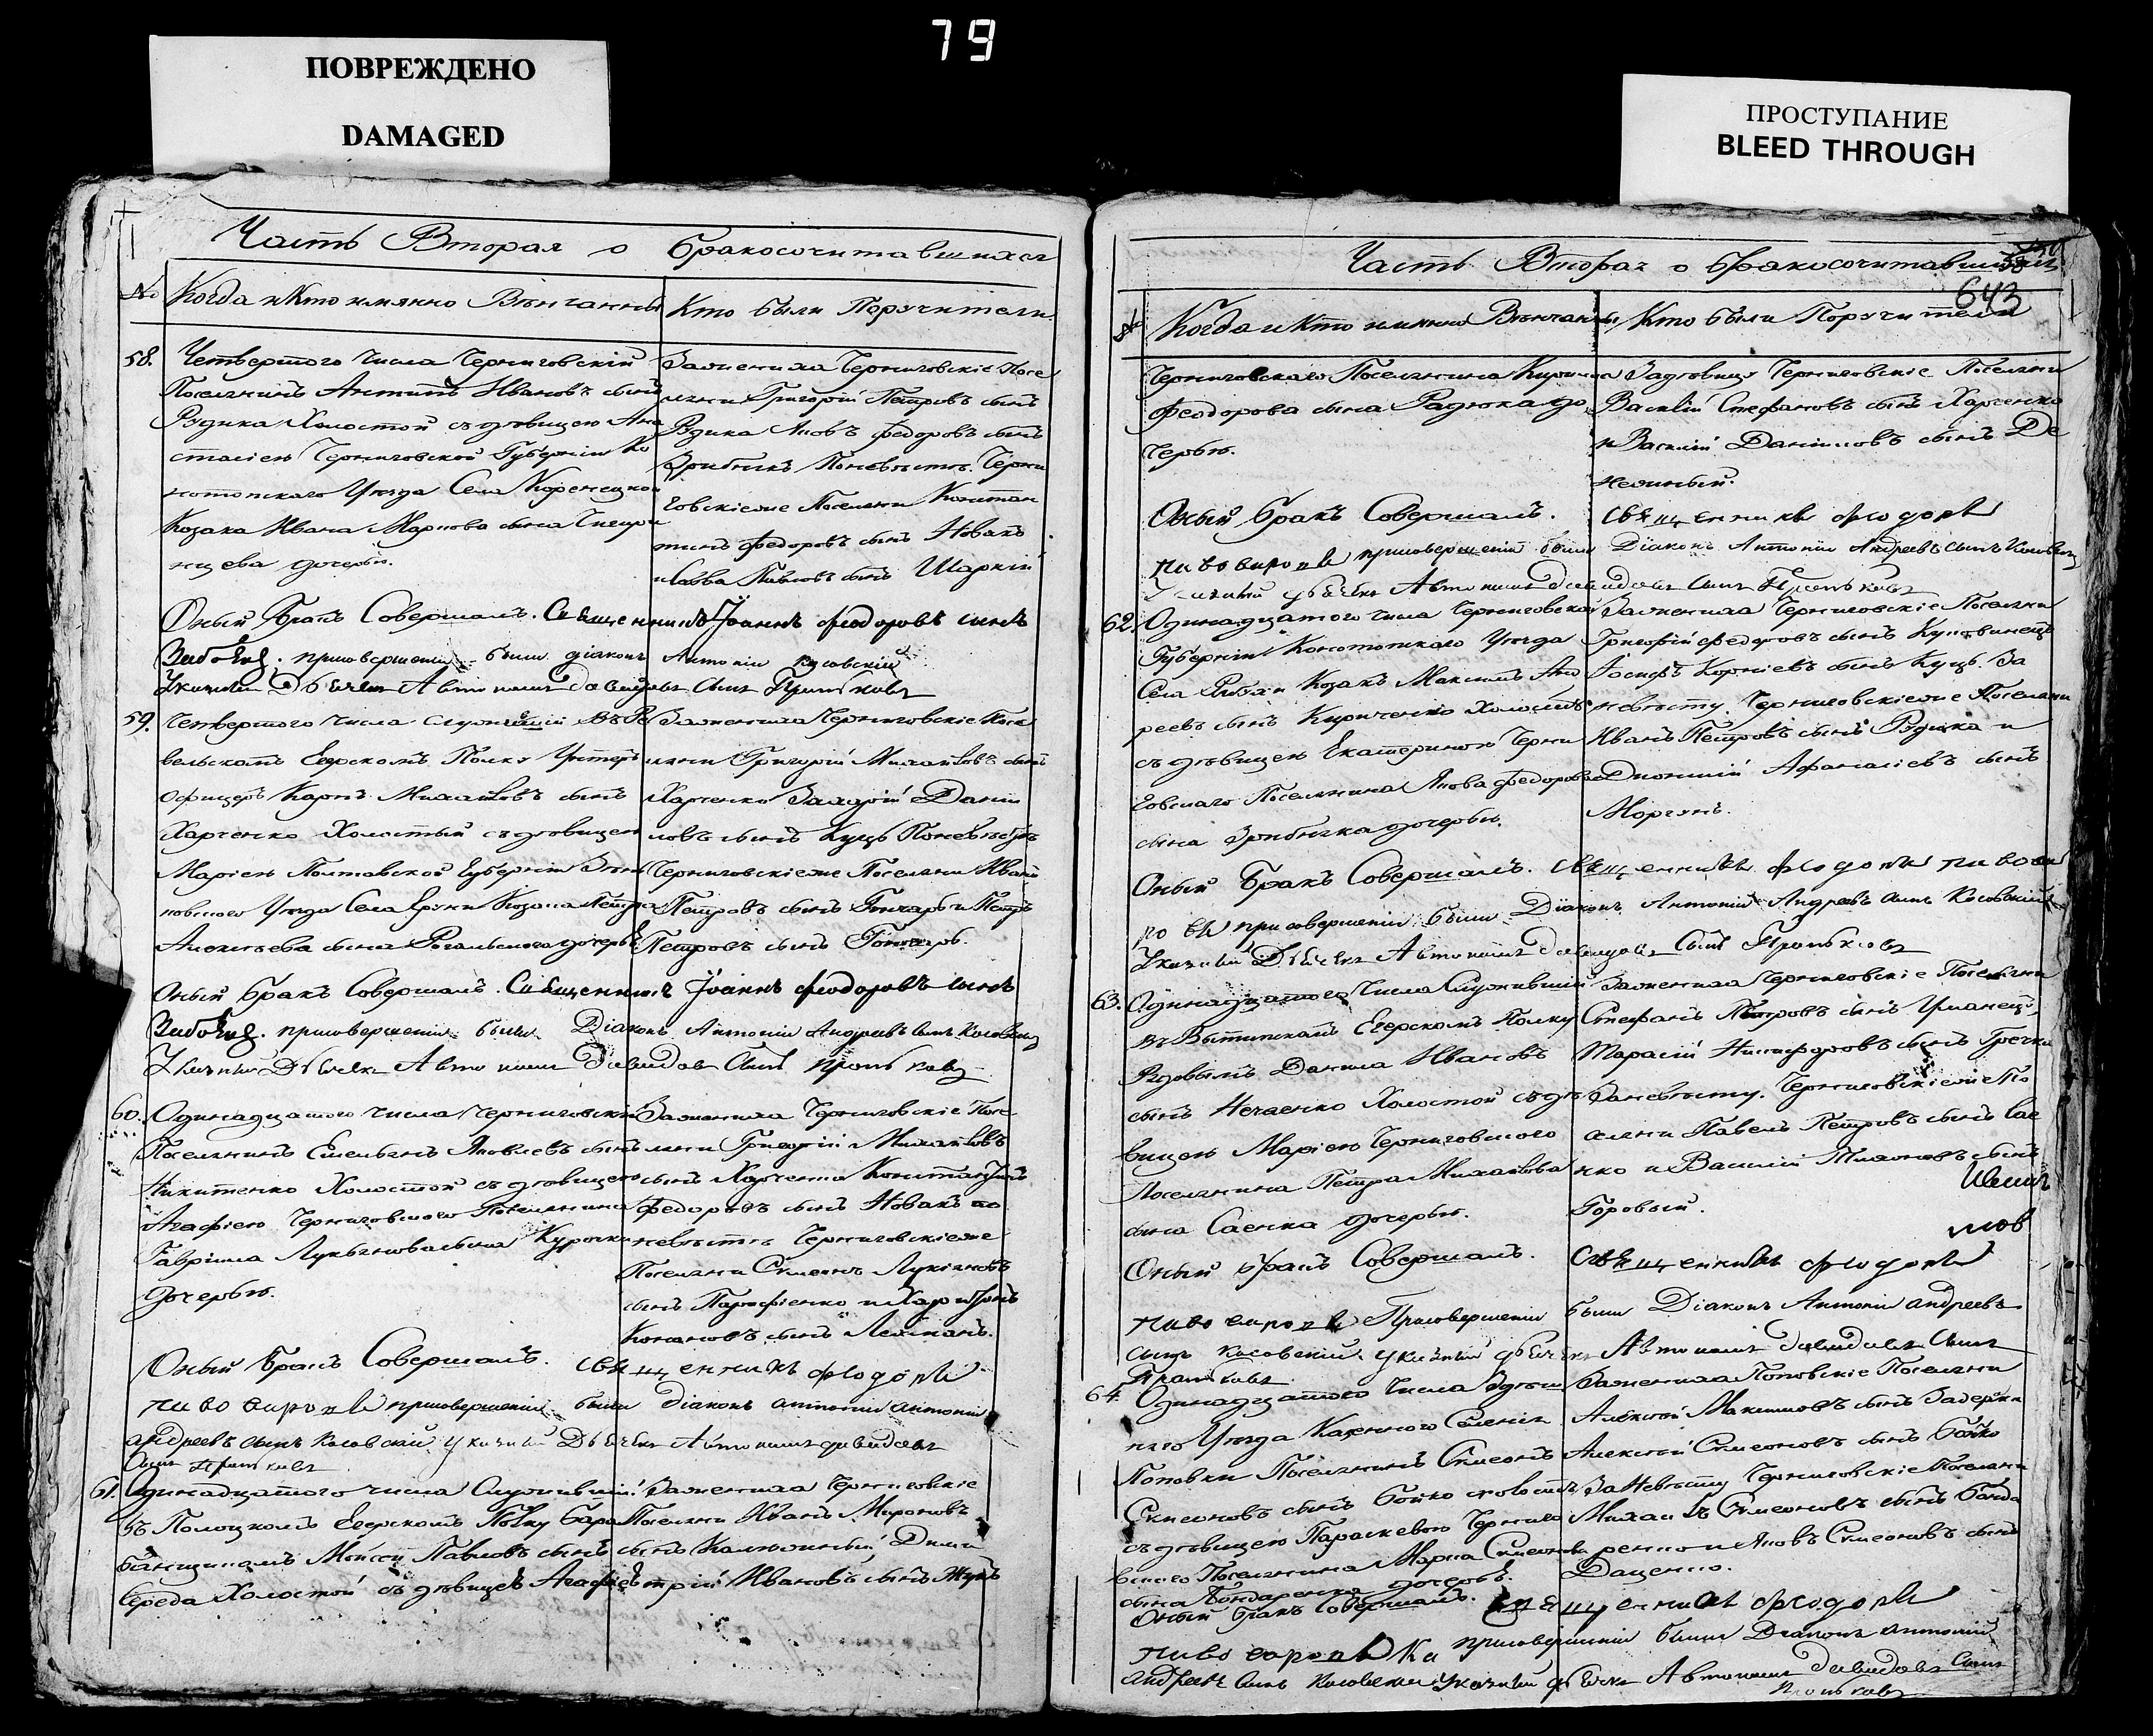 79
ПОВРЕЖДЕНО
DAMAGED
ПРОСТУПАНИЕ
BLEED THROUGH
Часть Вторая о бракосочитавшихся
№ Когда и Кто имянно Вѣнчанны
Кто были Поручители.
58. Четвертого Числа Черниговскій
Поселянинъ Антипъ Ивановъ сынъ
Рудика Холостой съ дѣвицею Ана
стасіею Черниговской Губерніи Ко
нотопскаго Уѣзда Села
Козака Ивана Маркова сына
дочерью.
За жениха Черниговскіе Посе
ляни Григорій Петровъ сынъ
Рудика Яковъ Федоровъ сынъ
По невѣстѣ Черни
говскіеже Поселяни Констан
тинъ Федоровъ сынъ Новакъ
и Савва Павловъ сынъ
Оный Бракъ Совершалъ. Священникъ Іоаннъ Феодоровъ сынъ
при совершеніи были діаконъ Антоній Косовскій
Указный Дьячекъ Автономъ Давидовъ сынъ
59. Четвертого Числа Служившій въ Ре
вельскомъ Егерскомъ Полку Унтеръ
Офицеръ Карпъ Михайловъ сынъ
Харченко Холостый съ дѣвицею
Маріею Полтавской Губерніи Зѣнь
ковского Уѣзда Села Козака Петра
Алексѣева сына дочерью
За жениха Черниговскіе Посе
ляни Григорій Михайловъ сынъ
Харченко Захарій Дани
ловъ сынъ Куць По невѣстѣ
Черниговскіеже Поселяни Иванъ
Петровъ сынъ Гончаръ и Петръ
Петровъ сынъ Гончаръ.
Оный Бракъ Совершалъ. Священникъ Іоаннъ Феодоровъ сынъ
при совершеніи были Діаконъ Антоній Андреевъ сынъ Косовскій
Указный Дьячекъ Автономъ Давидовъ сынъ
60. Одинадцатого Числа Черниговскій
Поселянинъ Емельянъ Яковлевъ сынъ
Никитенко Холостой съ дѣвицею
Агафіею Черниговского Поселянина
Гавріила Лукьянова сына Курочки
дочерью.
За жениха Черниговскіе Посе
ляни Григорій Михайловъ
сынъ Харченко Константинъ
Федоровъ сынъ Новакъ по
невѣстѣ Черниговскіеже
Поселяни Симеонъ Лукіяновъ
сынъ Парафіенко и Харитонъ
Кононовъ сынъ
Оный Бракъ Совершалъ. Священникъ Феодоръ
Пивоваровъ при совершеніи были Діаконъ Антоній Антоній
Андреевъ сынъ Косовскій Указный Дьячекъ Автономъ Давидовъ
сынъ
61. Одинадцатого числа Служившій
въ Полоцкомъ Егерскомъ Полку Бара
банщикомъ Мойсей Павловъ сынъ
Середа Холостой съ дѣвицею Агафіею
За жениха Черниговскіе
Поселяни Иванъ Мироновъ
сынъ Калюжный Дими
трій Ивановъ сынъ Жукъ
Часть Вторая о бракосочитавшихся
643
№ Когда и Кто имянно Вѣнчанны
Кто были Поручители
Черниговскаго Поселянина Кирила
Феодорова сына Радюка до
черью.
За дѣвицу Черниговскіе Поселяни
Василій Стефановъ сынъ Харченко
и Василій Даніиловъ сынъ
Оный Бракъ Совершалъ. Священникъ Феодоръ
Пивоваровъ при совершеніи были Діаконъ Антоній Андреевъ сынъ Косовскій
Указный дьячекъ Автономъ Давидовъ сынъ
62. Одинадцатого числа Черниговской
Губерніи Конотопскаго Уѣзда
Села Козакъ Максимъ Анд
реевъ сынъ Кириченко Холостъ
съ дѣвицею Екатериною Черни
говскаго Поселянина Якова Федорова
сына дочерью.
За жениха Черниговскіе Поселяни
Григорій Федоровъ сынъ
Іосифъ Корніевъ сынъ Куць. За
невѣсту Черниговскіеже Поселяни
Иванъ Петровъ сынъ Рудика и
Дионисій Афанасіевъ сынъ
Моргунъ.
Оный Бракъ Совершалъ. Священникъ Феодоръ Пивова
ровъ при совершеніи были Діаконъ Антоній Андреевъ сынъ Косовскій
Указный Дьячекъ Автономъ Давидовъ сынъ
63. Одинадцатого Числа Служившій
въ Егерскомъ Полку
Рядовымъ Данила Ивановъ
сынъ Нечаенко Холостой съ дѣ
вицею Маріею Черниговского
Поселянина Петра Михайлова
сына Саенка дочерью.
За жениха Черниговскіе Поселяни
Стефанъ Петровъ сынъ Уманецъ
Тарасій Никифоровъ сынъ Гречка
За невѣсту Черниговскіеже По
селяни Павелъ Петровъ сынъ Сае
нко и Василій сынъ
Горовый.
Оный Бракъ Совершалъ. Священникъ Феодоръ
Пивоваровъ При совершеніи были Діаконъ Антоній Андреевъ
сынъ Косовскій Указный дьячекъ Автономъ Давидовъ сынъ
64. Одинадцатого Числа Здѣш
няго Уѣзда Казенного Селенія
Поповки Поселянинъ Симеонъ
Симеоновъ сынъ Бойко холостъ
съ дѣвицею Параскевою Черниго
вского Поселянина Марка Симеонова
сына Бондаренка дочерью.
За жениха Поповскіе Поселяни
Алексѣй Максимовъ сынъ
Алексѣй Симеоновъ сынъ Бойко
За Невѣсту Черниговскіе Поселяни
Михаилъ Симеоновъ сынъ Бонда
ренко и Яковъ Симеоновъ сынъ
Даценко.
Оный бракъ Совершалъ. Священникъ Феодоръ
Пивоваровъ при совершеніи были Діаконъ Антоній
Андреевъ сынъ Косовскій Указный дьячекъ Автономъ Давидовъ сынъ